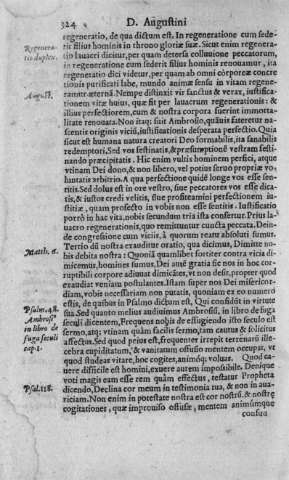 324 D. Augustini
regeneratio, de qua dictum est. In regeneratione cum sede-
Regenera-
tio duplex.
rit filius hominis in throno gloriæ suæ. Sicut enim regenera-
tio lauacri dicitur, per quam detersa colluuione peccatorum,
in regeneratione cum sederit filius hominis renouamur, ita
regeneratio dici videtur, per quam ab omni corporeæ concre
tionis purificati labe, mundo animæ sensu in vitam regene-
August.
ramur æternā. Nempe distāxit vir sanctus & verax, iustifica-
tionem vitæ huius, quæ fit per lauacrum regenerationis: &
illius perfectiorem, cum & nostra corpora fuerint immorta-
litate renouata. Non itaq; sibi Ambrosio, quāuis fateretur na-
scentis originis vicia, iustificationis desperata perfectio. Quia
sicut est humana natura creatori Deo formabilis, ita sanabilis
redemptori. Sed vos festinatis, & præsumptionē vestram festi-
nando præcipitatis. Hic enim vultis hominem perfici, atque
vtinam Dei dono, & non libero, vel potius seruo propriæ vo-
luntatis arbitrio. A qua perfectione quidē longe vos esse sen-
titis. Sed dolus est in ore vestro, siue peccatores vos esse dica-
tis, & iustos credi velitis, siue profiteamini perfectionem iu-
stitiæ, quam profecto in vobis non esse sentitis. Iustificatio
porrò in hac vita, nobis secundum tria ista confertur. Prius la-
uacro regenerationis, quo remittuntur cuncta peccata. Dein-
de congressione cum viciis, à quorum reatu absoluti sumus.
Matth. 6.
Tertio dū nostra exauditur oratio, qua dicimus, Dimitte no-
bis debita nostra: Quoniā quamlibet fortiter contra vicia di-
micemus, homines sumus. Dei autē gratia sic nos in hoc cor-
ruptibili corpore adiuuat dimicātes, vt non desit, propter quod
exaudiat veniam postulantes. Ham super nos Dei misericor-
diam, vobis necessariam non putatis, quoniam ex eo numero
Psalm. 48.
estis, de quibus in Psalmo dictum est, Qui confidūt in virtute
Ambros.
sua. Sed quanto melius audiuimus Ambrosii, in libro de fuga
in libro de
seculi dicentem, Frequens nobis de effugiendo isto seculo est
fuga seculi
sermo, atq; vtinam quàm facilis sermo, tam cautus & solicitus
cap. 1.
affectus. Sed quod prius est, frequenter irrepit terrenarū ille-
cebra cupiditatum, & vanitatum offusio mentem occupat, vt
quod studeas vitare, hoc cogites, animóq; voluas. Quod caue-
re difficile est homini, exuere autem impossibile. Denique
voti magis eam esse rem quàm effectus, testatur Propheta
Psal. 118.
dicendo, Declina cor meum in testimonia tua, & non in aua-
riciam. Non enim in potestate nostra est cor nostrū, & nostræ
cogitationes, quæ improuiso offusæ, mentem animúmque
confun